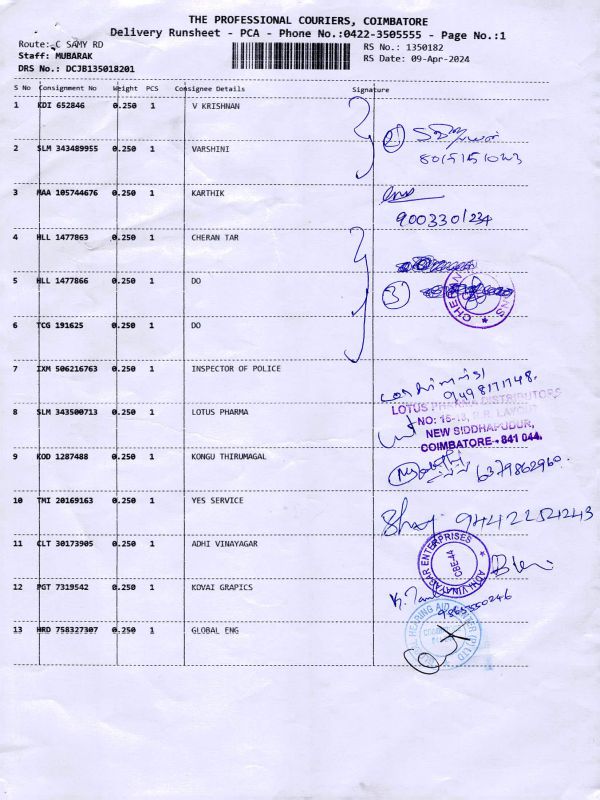 THE PROFESSIONAL COURIERS, COIMBATORE
Delivery Runsheet - PCA - Phone No.:0422-3505555 - Page No.:1
Route: C SAMY RD
RS No.: 1350182
Staff: MUBARAK
RS Date: 09-Apr-2024
DRS No.: DCJB135018201
S No Consignment No Weight PCS Consignee Details Signature
1 KDI 652846 0.250 1 V KRISHNAN
2
2 SLM 343489955 0.250 1 VARSHINI
3 MAA 105744676 0.250 1 KARTHIK
9003301234
4 HLL 1477863 0.250 1 CHERAN TAR
5 HLL 1477866 0.250 1 DO
3
6 TCG 191625 0.250 1 DO
7 IXM 506216763 0.250 1 INSPECTOR OF POLICE
9498171748.
8 SLM 343500713 0.250 1 LOTUS PHARMA
LOTUS PHARMA DISTRIBUTORS
NEW SIDDHAPUDUR,
COIMBATORE - 641 044.
9 KOD 1287488 0.250 1 KONGU THIRUMAGAL
6379862960.
10 TMI 20169163 0.250 1 YES SERVICE
11 CLT 30173905 0.250 1 ADHI VINAYAGAR
ADHI VINAYAGAR ENTERPRISES
CBE-44
12 PGT 7319542 0.250 1 KOVAI GRAPICS
9865550246
13 HRD 758327307 0.250 1 GLOBAL ENG
HEARING AID